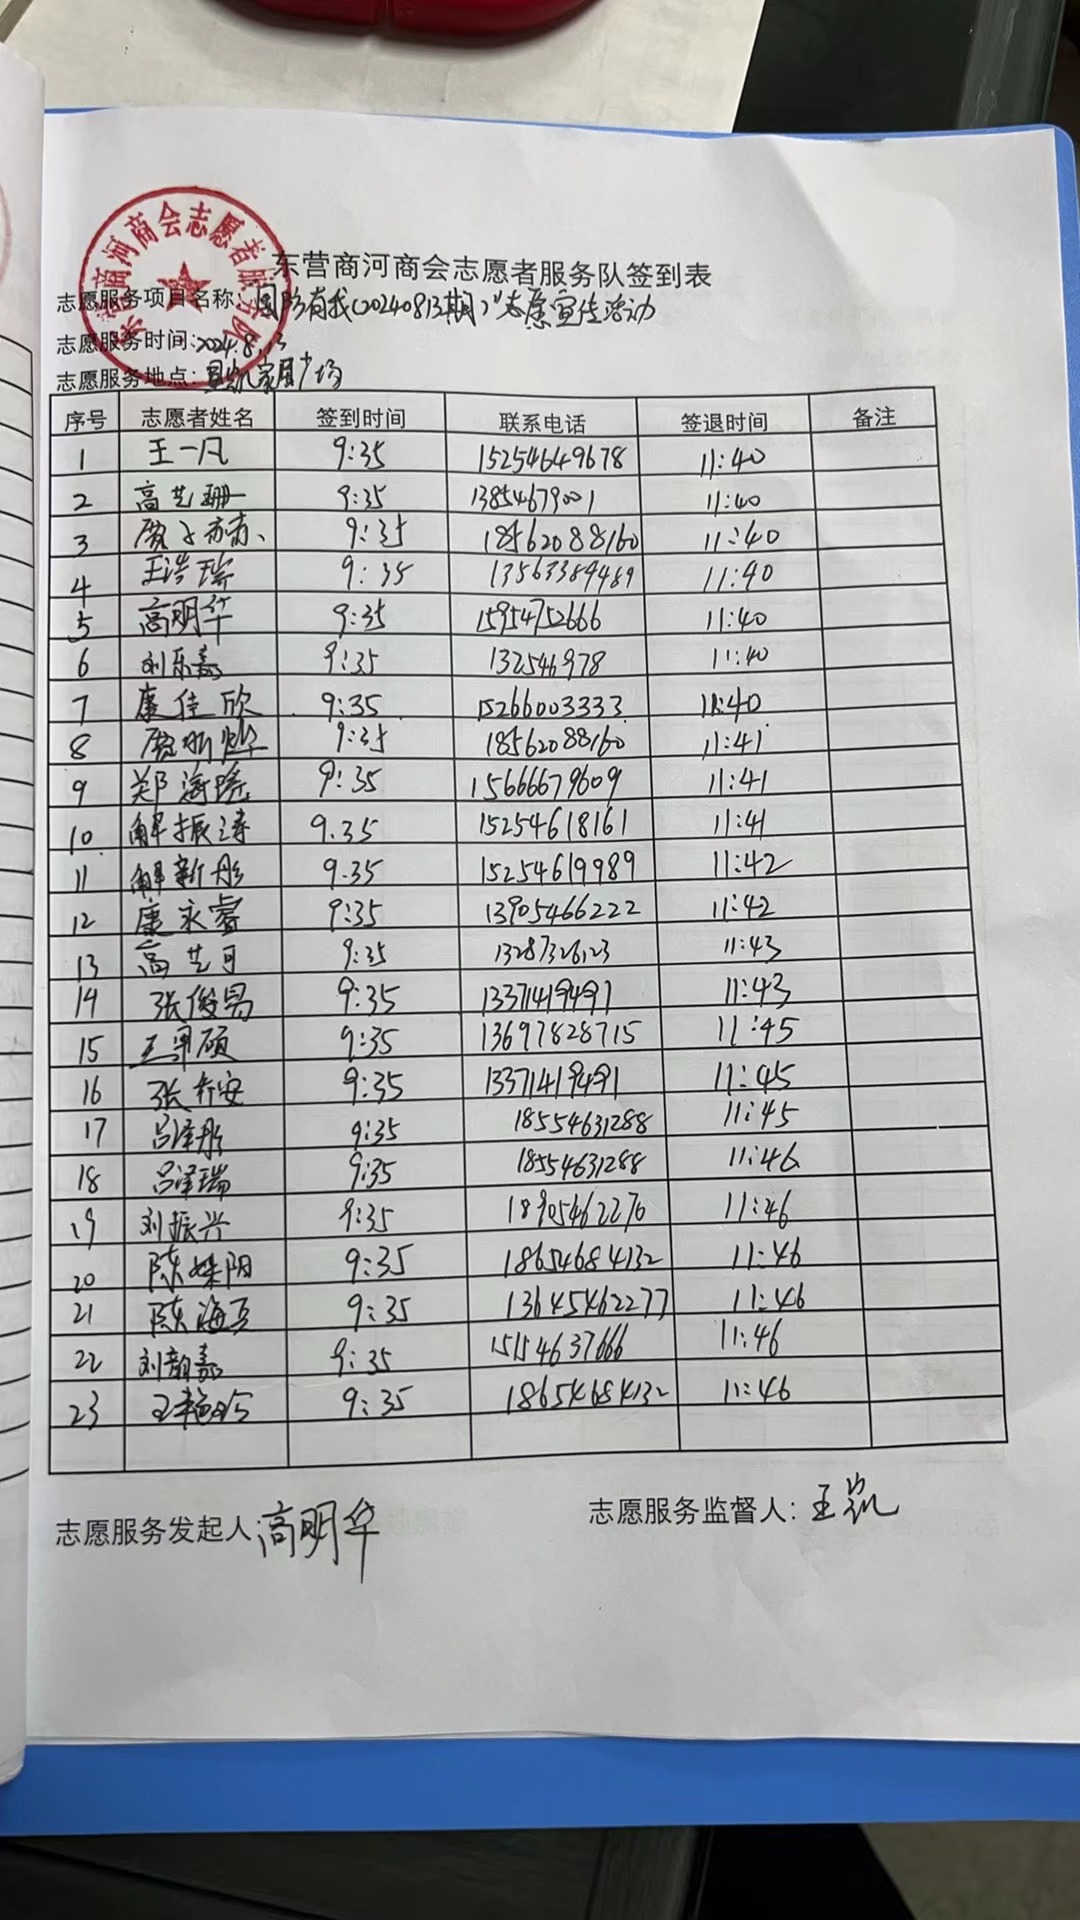 东营商河商会志愿者服务队
东营商河商会志愿者服务队签到表
志愿服务项目名称:"国防有我(20240813期)"志愿宣传活动
志愿服务时间:2024.8.13
志愿服务地点:凯家居广场
序号 志愿者姓名 签到时间 联系电话 签退时间 备注
1 王一凡 9:35 15254649678 11:40
2 高艺珊 9:35 13854679001 11:40
3 9:35 18562088160 11:40
4 王浩瑞 9:35 13563384489 11:40
5 高明华 9:35 15954752666 11:40
6 刘乐嘉 9:35 132546978 11:40
7 康佳欣 9:35 15266003333 11:40
8 9:35 18562088160 11:41
9 郑海瑶 9:35 15666679609 11:41
10 解振涛 9.35 15254618161 11:41
11 解新彤 9.35 15254619989 11:42
12 康永睿 9:35 13905466222 11:42
13 高艺可 9:35 13287326123 11:43
14 张俊昌 9:35 13371419491 11:43
15 硕 9:35 13697828715 11:45
16 张乔安 9:35 13371419491 11:45
17 吕泽彤 9:35 18554631288 11:45
18 吕泽瑞 9:35 18554631288 11:46
19 刘振兴 9:35 18905462270 11:46
20 陈姝阴 9:35 18654684132 11:46
21 陈海 9:35 13645462277 11:46
22 刘韵嘉 9:35 15154637666 11:46
23 王艳玲 9:35 18654684132 11:46
志愿服务发起人:高明华
志愿服务监督人:王凯